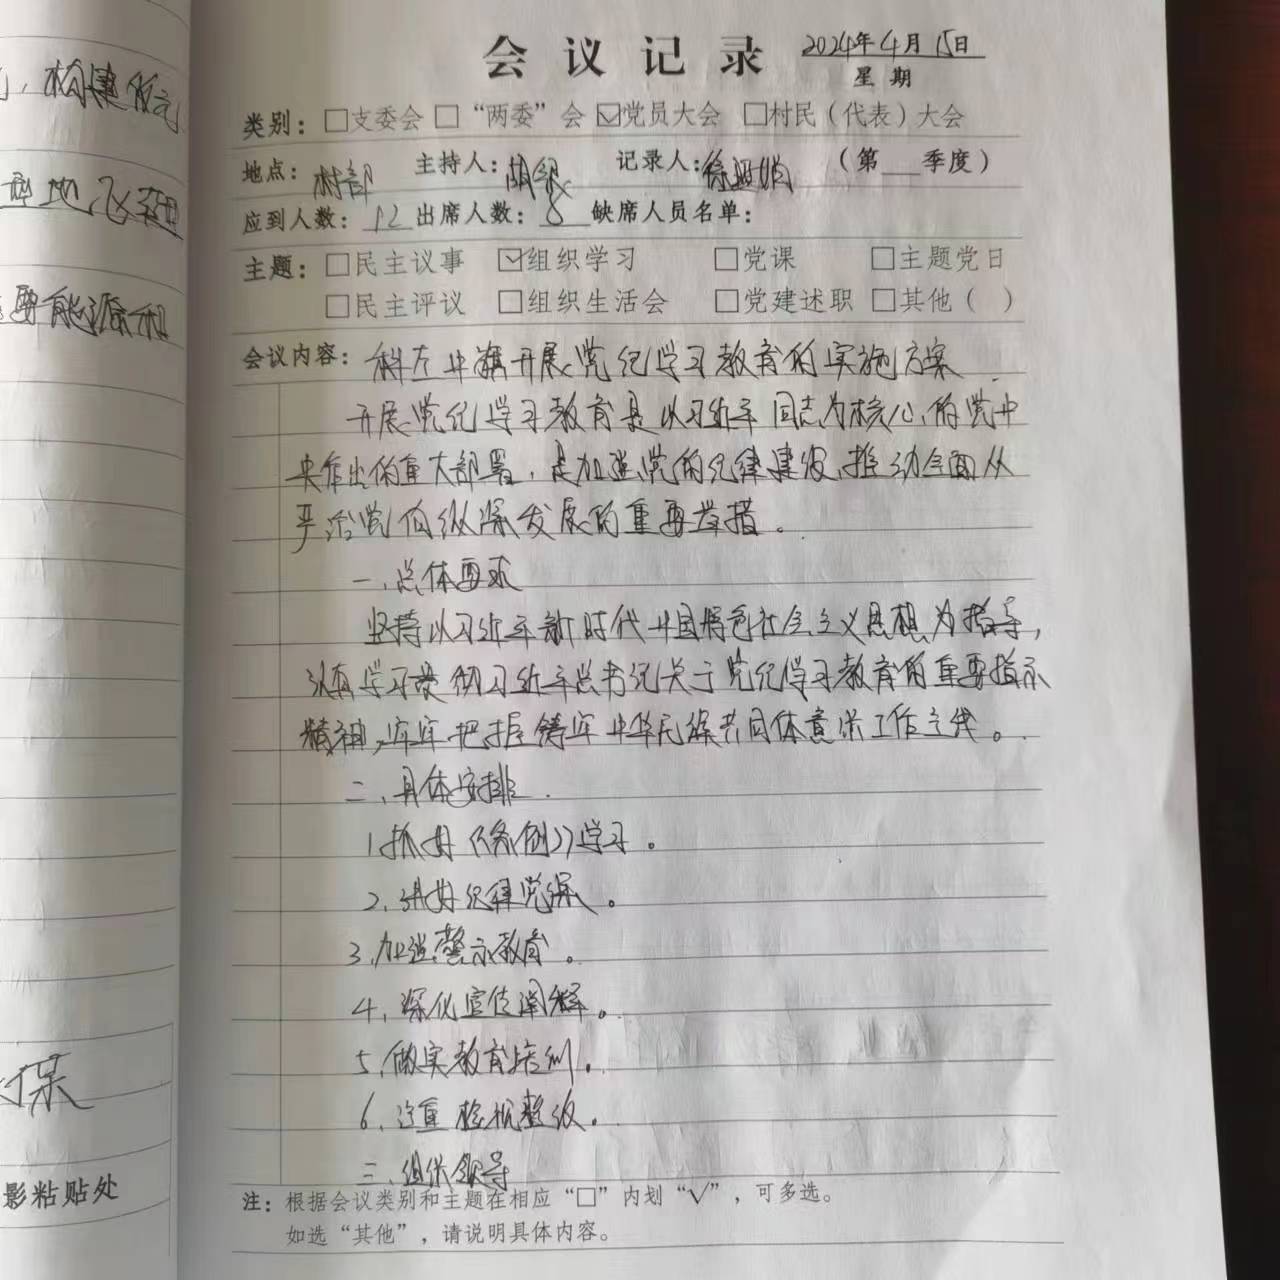 构建
型地
要能源和
影粘贴处
会议记录 2024年4月15日
星期
类别：□支委会 □“两委”会 ☑党员大会 □村民（代表）大会
地点：村部 主持人： 记录人：徐 （第 季度）
应到人数：12 出席人数：8 缺席人员名单：
主题：□民主议事 ☑组织学习 □党课 □主题党日
□民主评议 □组织生活会 □党建述职 □其他（ ）
会议内容：科左中旗开展党纪学习教育的实施方案
开展党纪学习教育是以习近平同志为核心的党中
央作出的重大部署，是加强党的纪律建设，推动全面从
严治党向纵深发展的重要举措。
一、总体要求
坚持以习近平新时代中国特色社会主义思想为指导，
认真学习贯彻习近平总书记关于党纪学习教育的重要指示
精神，牢牢把握铸牢中华民族共同体意识工作主线。
二、具体安排
1、抓好《条例》学习。
2、讲好纪律党课。
3、加强警示教育。
4、深化宣传阐释。
5、做实教育培训。
6、注重检视整改。
三、组织领导
注：根据会议类别和主题在相应“□”内划“√”，可多选。
如选“其他”，请说明具体内容。